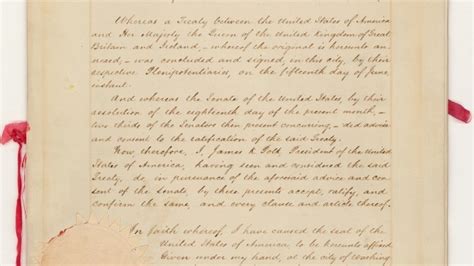 Whereas a Treaty between the United States of America
and Her Majesty the Queen of the United Kingdom of Great
Britain and Ireland, - whereof the original is hereunto an-
nexed, - was concluded and signed, in this city, by their
respective Plenipotentiaries, on the fifteenth day of June,
instant.
And whereas the Senate of the United States, by their
resolution of the eighteenth day of the present month, -
two thirds of the Senators then present concurring, - did advise
and consent to the ratification of the said Treaty.
Now, therefore, I, James K. Polk, President of the United
States of America, having seen and considered the said
Treaty, do, in pursuance of the aforesaid advice and con-
sent of the Senate, by these presents accept, ratify, and
confirm the same, and every clause and article thereof.
In faith whereof, I have caused the seal of the
United States of America to be hereunto affixed
Given under my hand, at the city of Washing